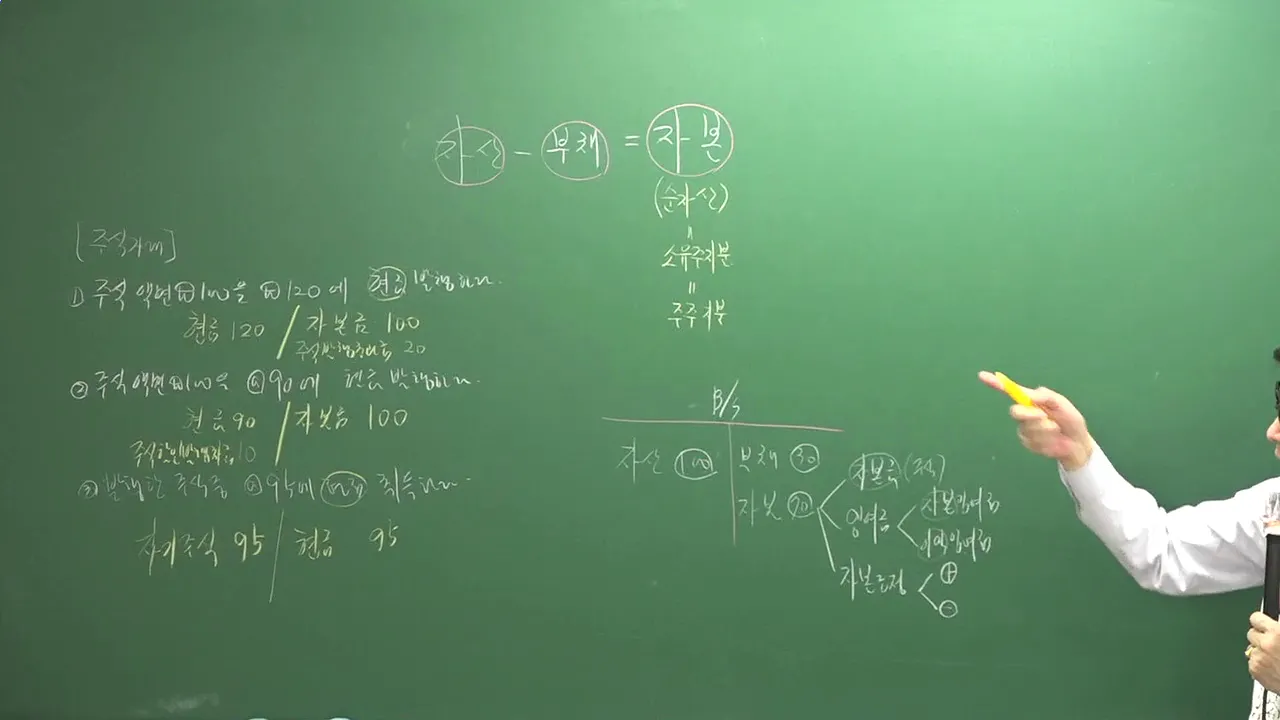 자산 - 부채 = 자본
(순자산)
=
소유주지분
=
주주지분
[주식거래]
1) 주식 액면 ₩100을 ₩120에 현금 발행하다.
현금 120 / 자본금 100
주식발행초과금 20
② 주식 액면 ₩100을 @90에 현금 발행하다.
현금 90 / 자본금 100
주식할인발행차금 10
③ 발행한 주식중 @95에 취득하다.
자기주식 95 / 현금 95
B/S
자산 100 부채 30
자본 70
자본금 (주식)
잉여금 자본잉여금
이익잉여금
자본조정 +
-